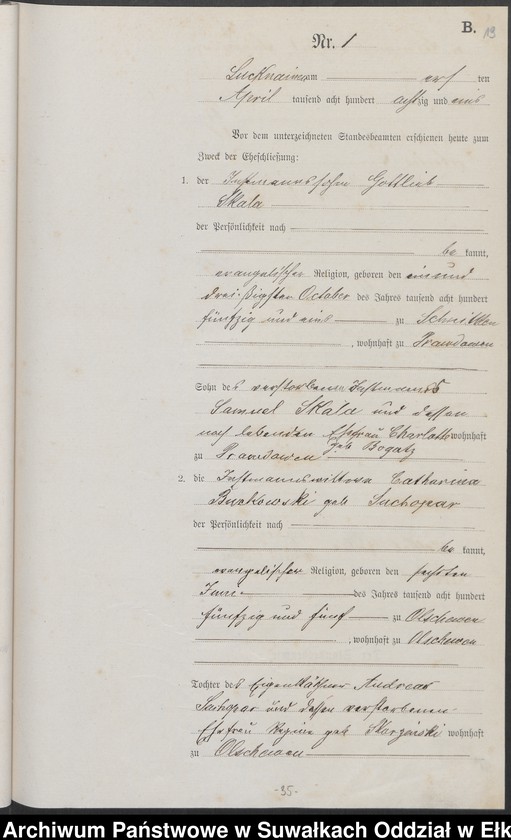 B. 13
Nr. 1
Lucknainen am elf ten
April tausend acht hundert achtzig und eins
Vor dem unterzeichneten Standesbeamten erschienen heute zum
Zweck der Eheschließung:
1. der Instmannssohn Gottlieb
Skala
der Persönlichkeit nach
be kannt,
evangelischer Religion, geboren den ein und
dreißigsten October des Jahres tausend acht hundert
fünfzig und eins zu
, wohnhaft zu Prawdowen
Sohn des verstorbenen Instmanns
Samuel Skala und dessen
noch lebenden Ehefrau Charlotte wohnhaft
geb Bogatz
zu Prawdowen
2. die Instmannswittwe Catharina
geb Suchopar
der Persönlichkeit nach
be kannt,
evangelischer Religion, geboren den sechsten
Juni des Jahres tausend acht hundert
fünfzig und fünf zu Olschewen
, wohnhaft zu Olschewen
Tochter des Eigenkäthner Andreas
Suchopar und dessen verstorbenen
Ehefrau Regine geb Skarzinski wohnhaft
zu Olschewen
-35-
Archiwum Państwowe w Suwałkach Oddział w Ełk